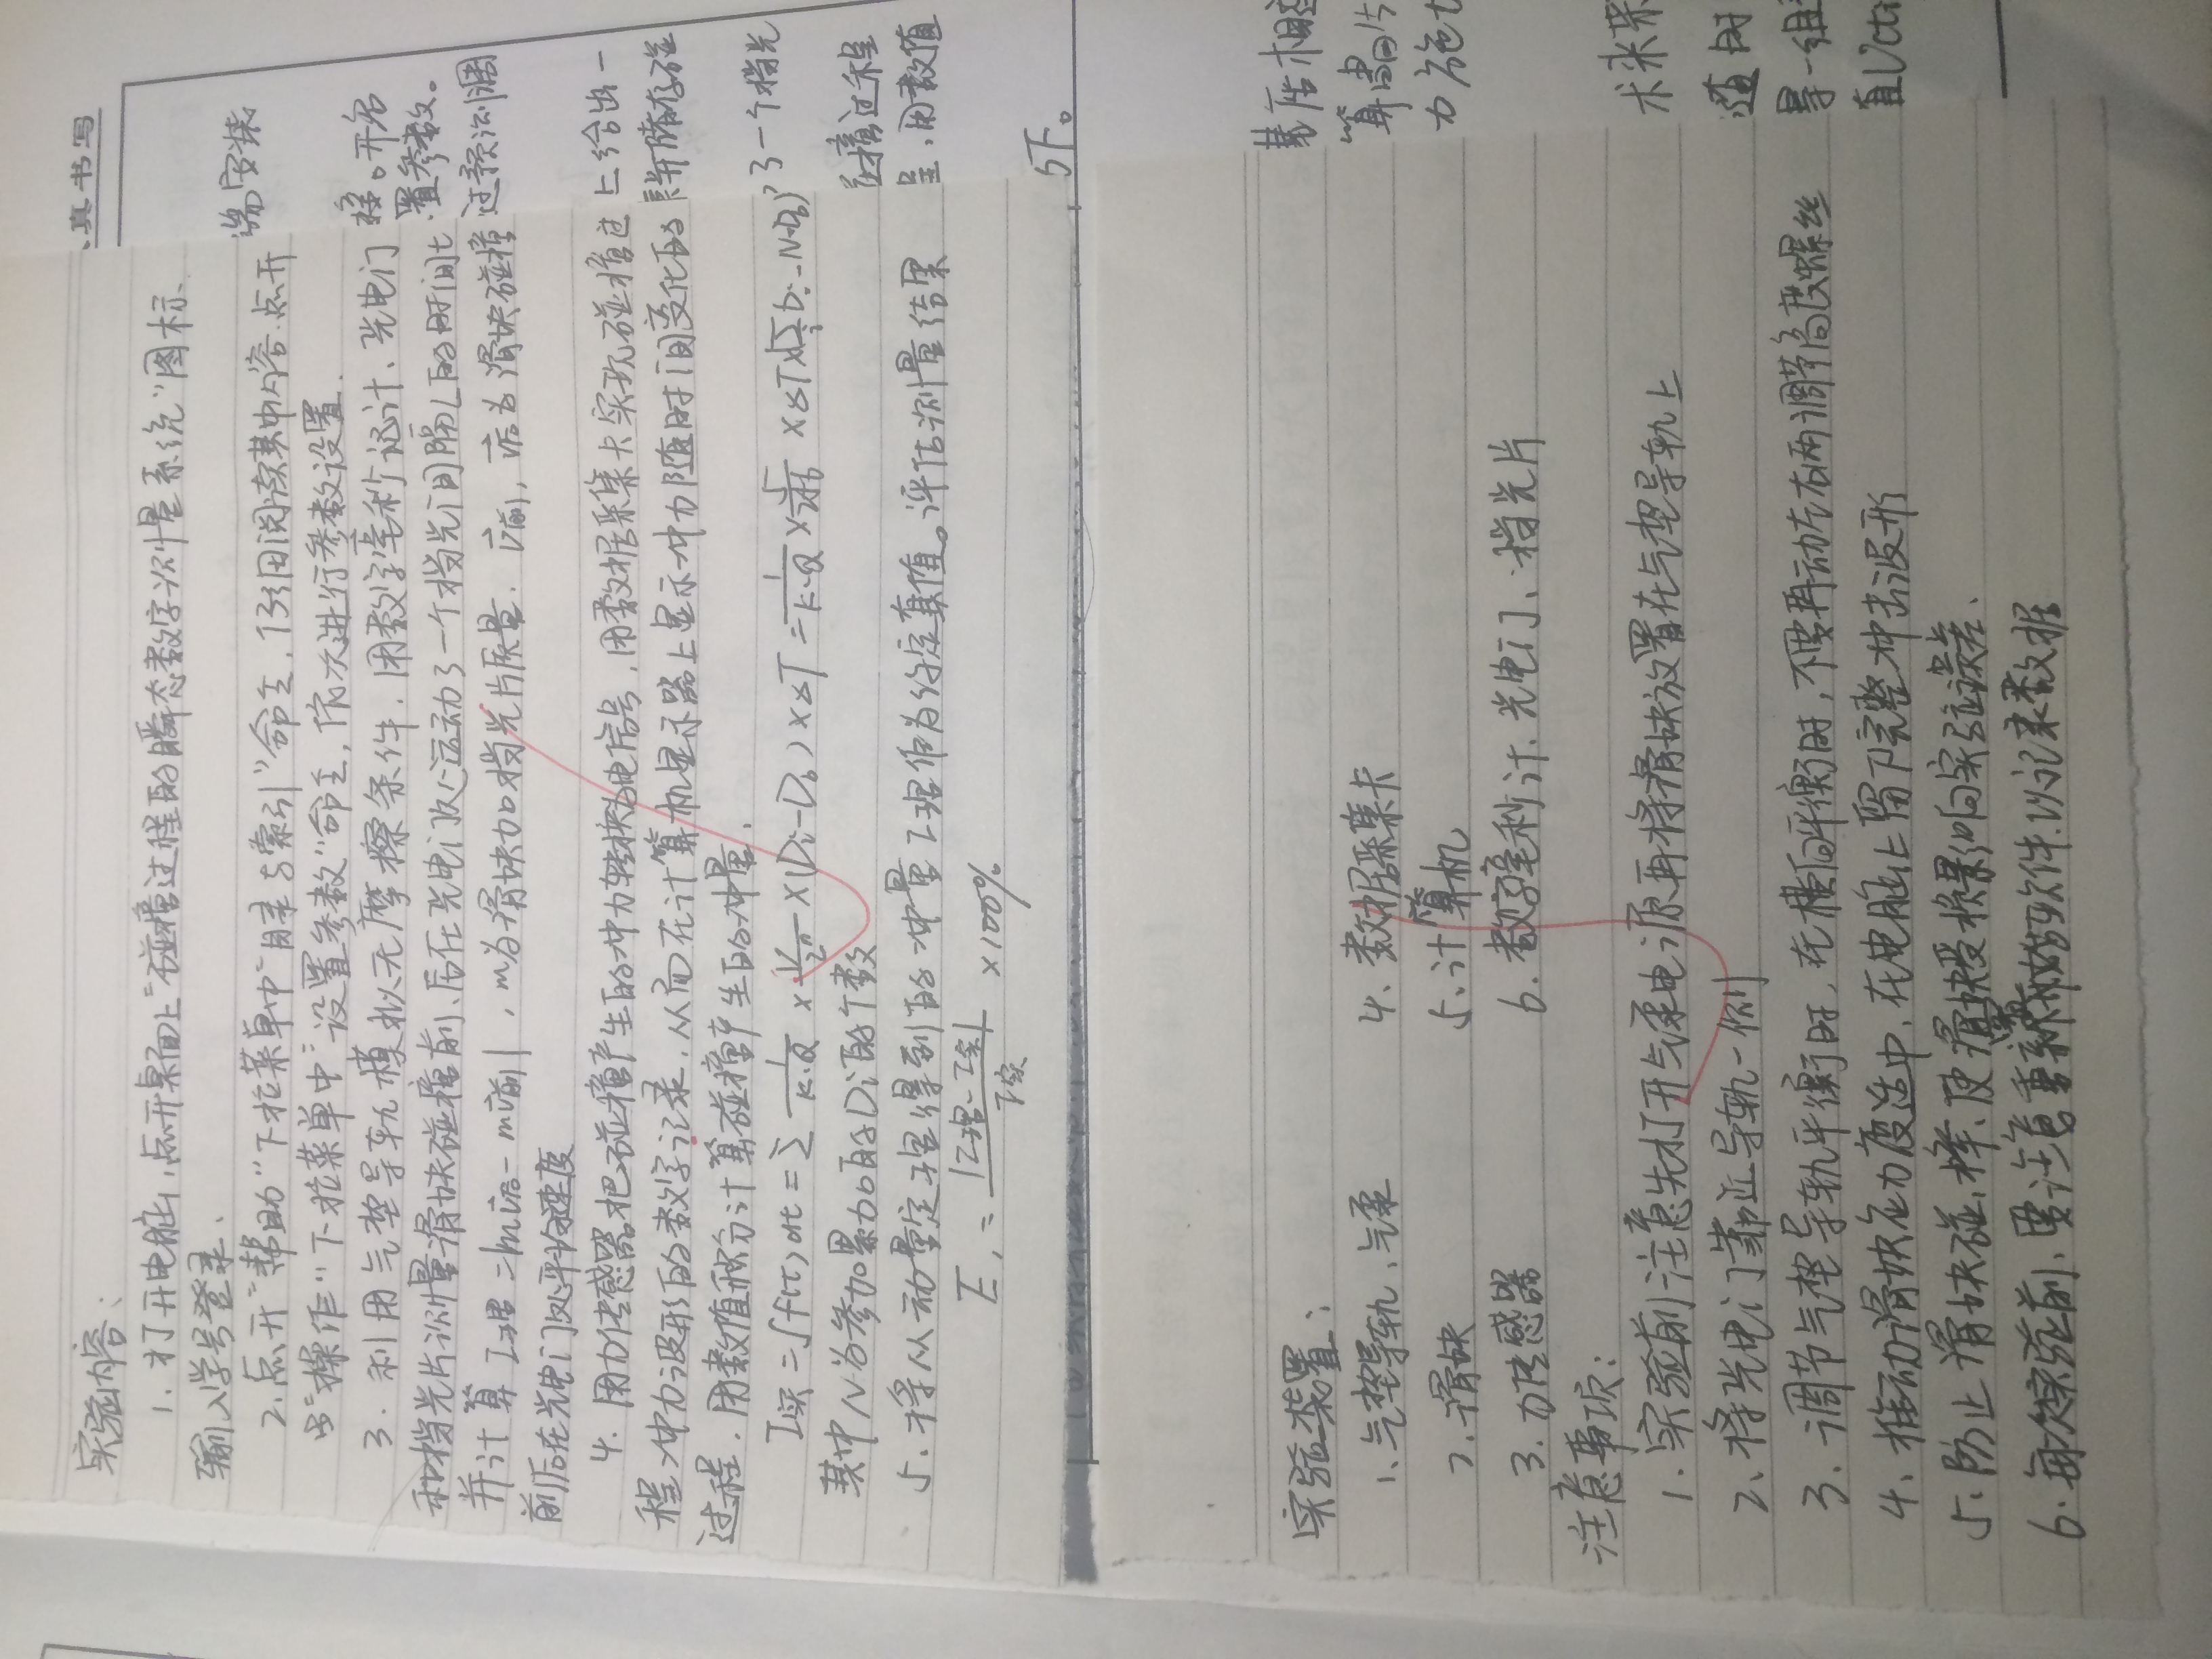 实验内容：
1. 打开电脑，点开桌面上"碰撞过程的瞬态数字测量系统"图标
输入学号登录.
2. 点开"帮助"下拉菜单中"目录与索引"命令，仔细阅读其中内容. 点开
"操作"下拉菜单中"设置参数"命令，依次进行参数设置.
3. 利用气垫导轨模拟无摩擦条件，用数字毫秒计、光电门
和挡光片测量滑块碰撞前、后在光电门处运动了一个挡光间隔L的时间t
并计算 I理=|mv后-mv前|，m为滑块加挡光片质量. v前，v后为滑块碰撞
前后在光电门处平均速度
4. 用力传感器把碰撞产生的冲力转换为电信号，用数据采集卡实现碰撞过
程冲力波形的数字记录，从而在计算机显示器上显示冲力随时间变化的
过程，用数值积分计算碰撞产生的冲量，
I实=∫f(t)dt=Σ 1/K·Q × V/2ⁿ ×(Di-D0)×ΔT = 1/K·Q × ×ΔT×
其中N为参加累加的Di的个数
5. 将从动量定理得到的冲量I理作为约定真值。评估测量结果
E1= |I理-I实|/I实 ×100%
真书写
端安装
接。开启
置参数。
过预测调
上给出一
并储存碰
了一个挡光
碰撞过程
，用数值
下。
实验装置：
1、气垫导轨、气泵 4、数据采集卡
2、滑块 5、计算机
3、力传感器 6、数字毫秒计、光电门、挡光片
注意事项：
1. 实验前注意先打开气泵电源再将滑块放置在气垫导轨上
2、将光电门靠近导轨一侧
3、调节气垫导轨平衡时，在横向平衡时，不要再动左右两调节高度螺丝
4、推动滑块应力度适中，在电脑上留下完整冲击波形
5、防止滑块碰、摔、使滑块受损影响实验误差、
6. 每次实验前、要注意重新开始软件.以记录数据
基座相连
力施
时
一组